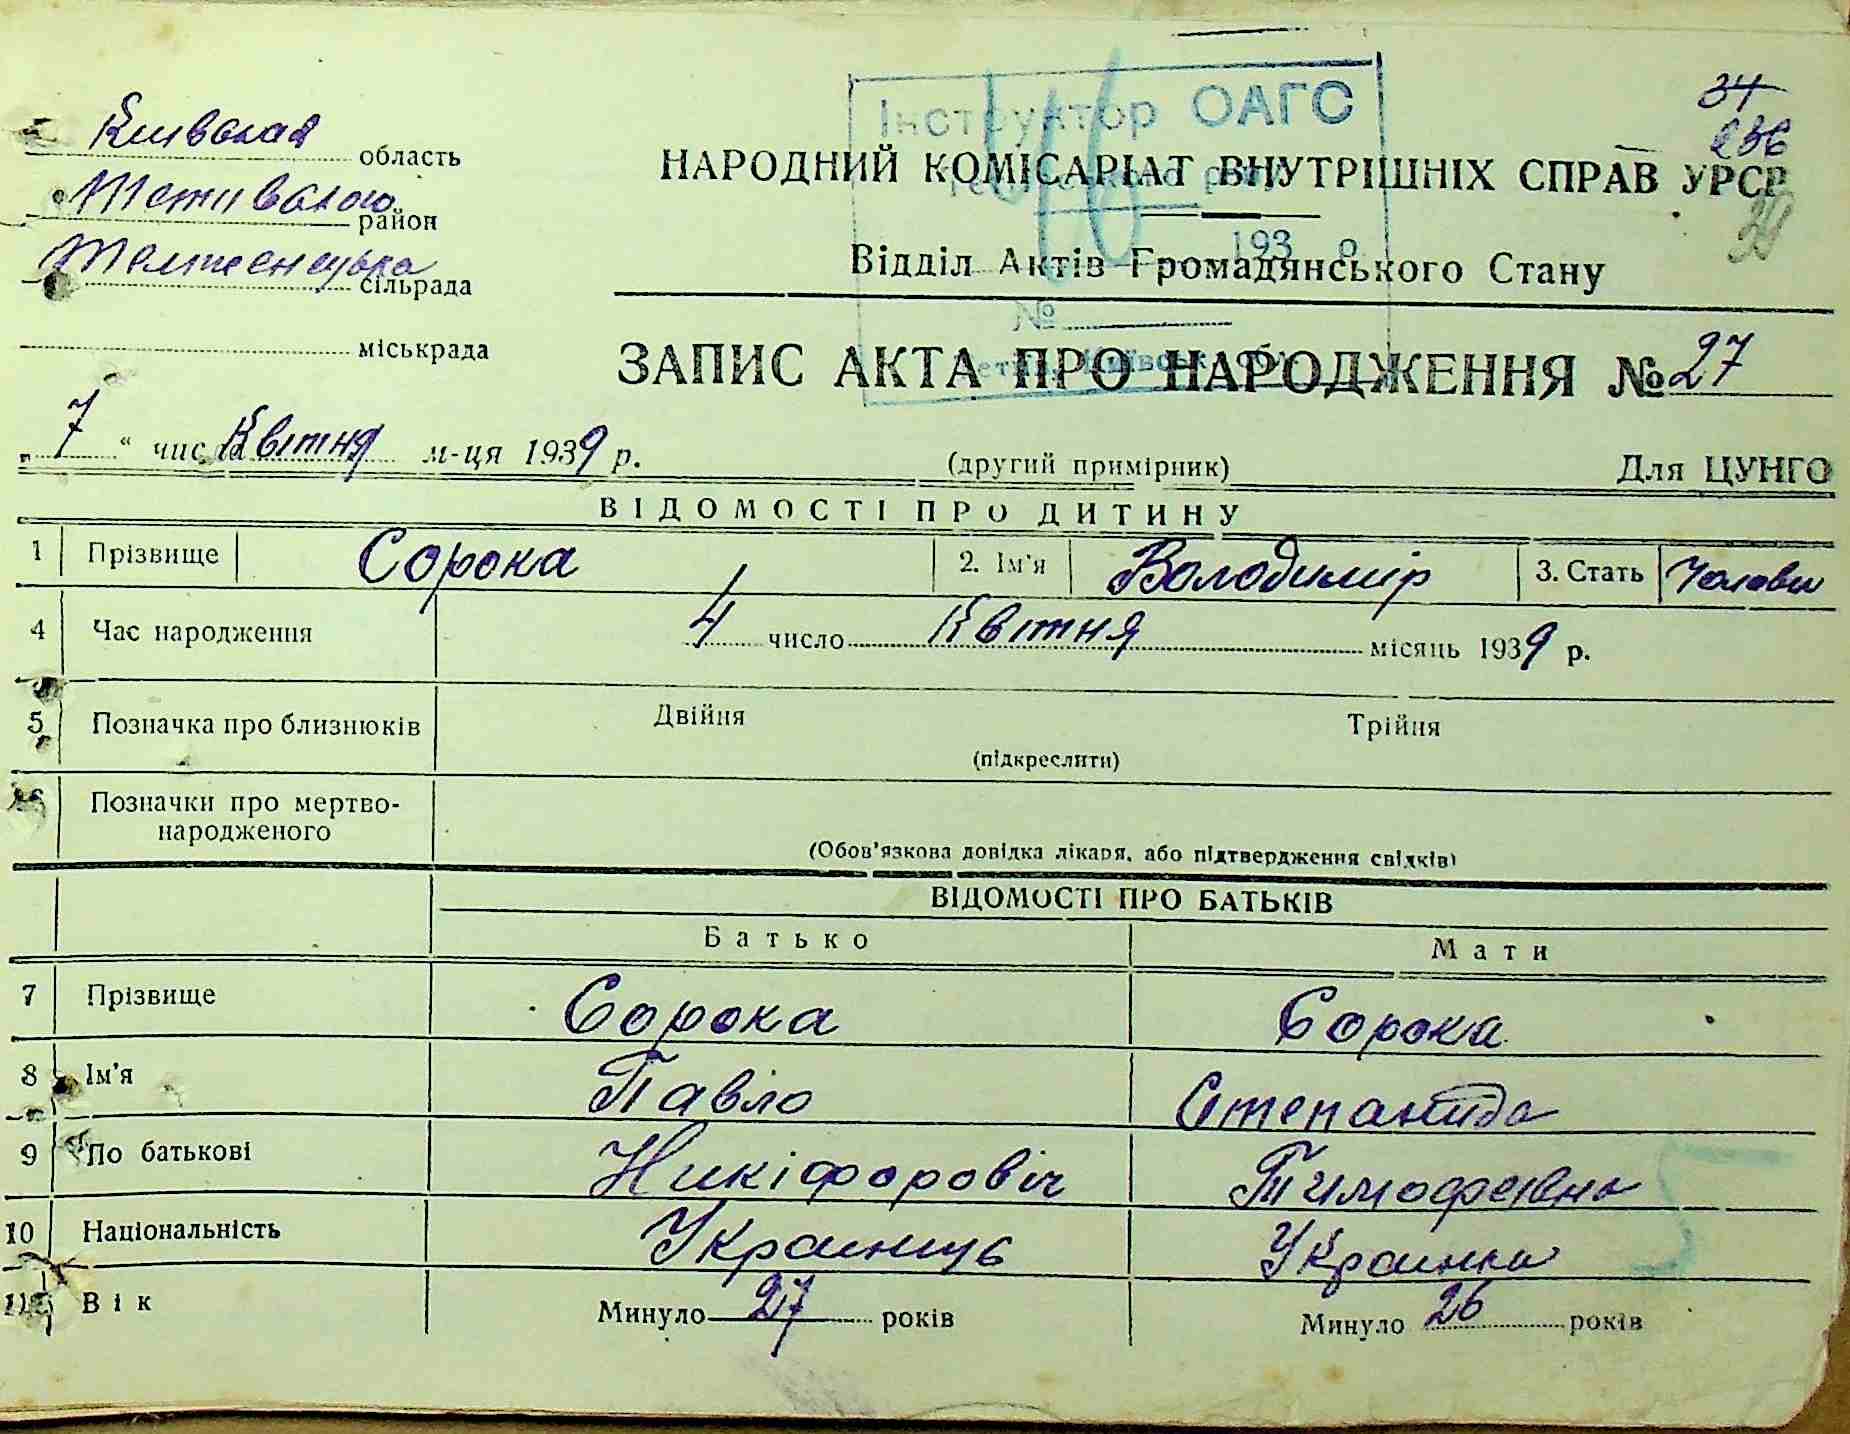 34
236
39
Інструктор ОАГС
193 р.
№
Київська область
Тетивского район
сільрада
міськрада
НАРОДНИЙ КОМІСАРІАТ ВНУТРІШНІХ СПРАВ УРСР
Відділ Актів Громадянського Стану
ЗАПИС АКТА ПРО НАРОДЖЕННЯ № 27
„ 7 “ числа Квітня м-ця 1939 р.
(другий примірник)
Для ЦУНГО
ВІДОМОСТІ ПРО ДИТИНУ
1 Прізвище Сорока 2. Ім'я Володимір 3. Стать Чоловіч
4 Час народження 4 число Квітня місяць 1939 р.
5 Позначка про близнюків Двійня Трійня
(підкреслити)
6 Позначки про мертво-
народженого
(Обов'язкова довідка лікаря, або підтвердження свідків)
ВІДОМОСТІ ПРО БАТЬКІВ
Батько Мати
7 Прізвище Сорока Сорока
8 Ім'я Павло Степанида
9 По батькові Никіфоровіч Тимофеівна
10 Національність Украинець Украинка
11 Вік Минуло 27 років Минуло 26 років